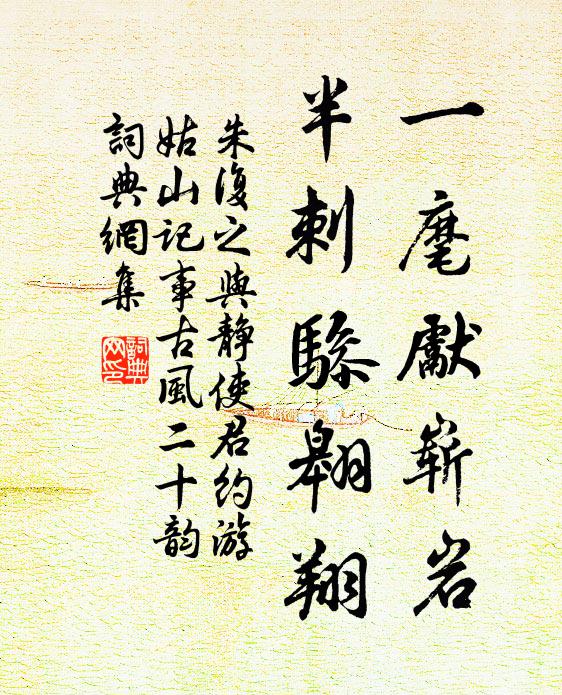 一麾獻嶄岩
半刺驂翱翔
朱復之與靜使君約游
姑山記事古風二十韵
詞典網集
詞典网印